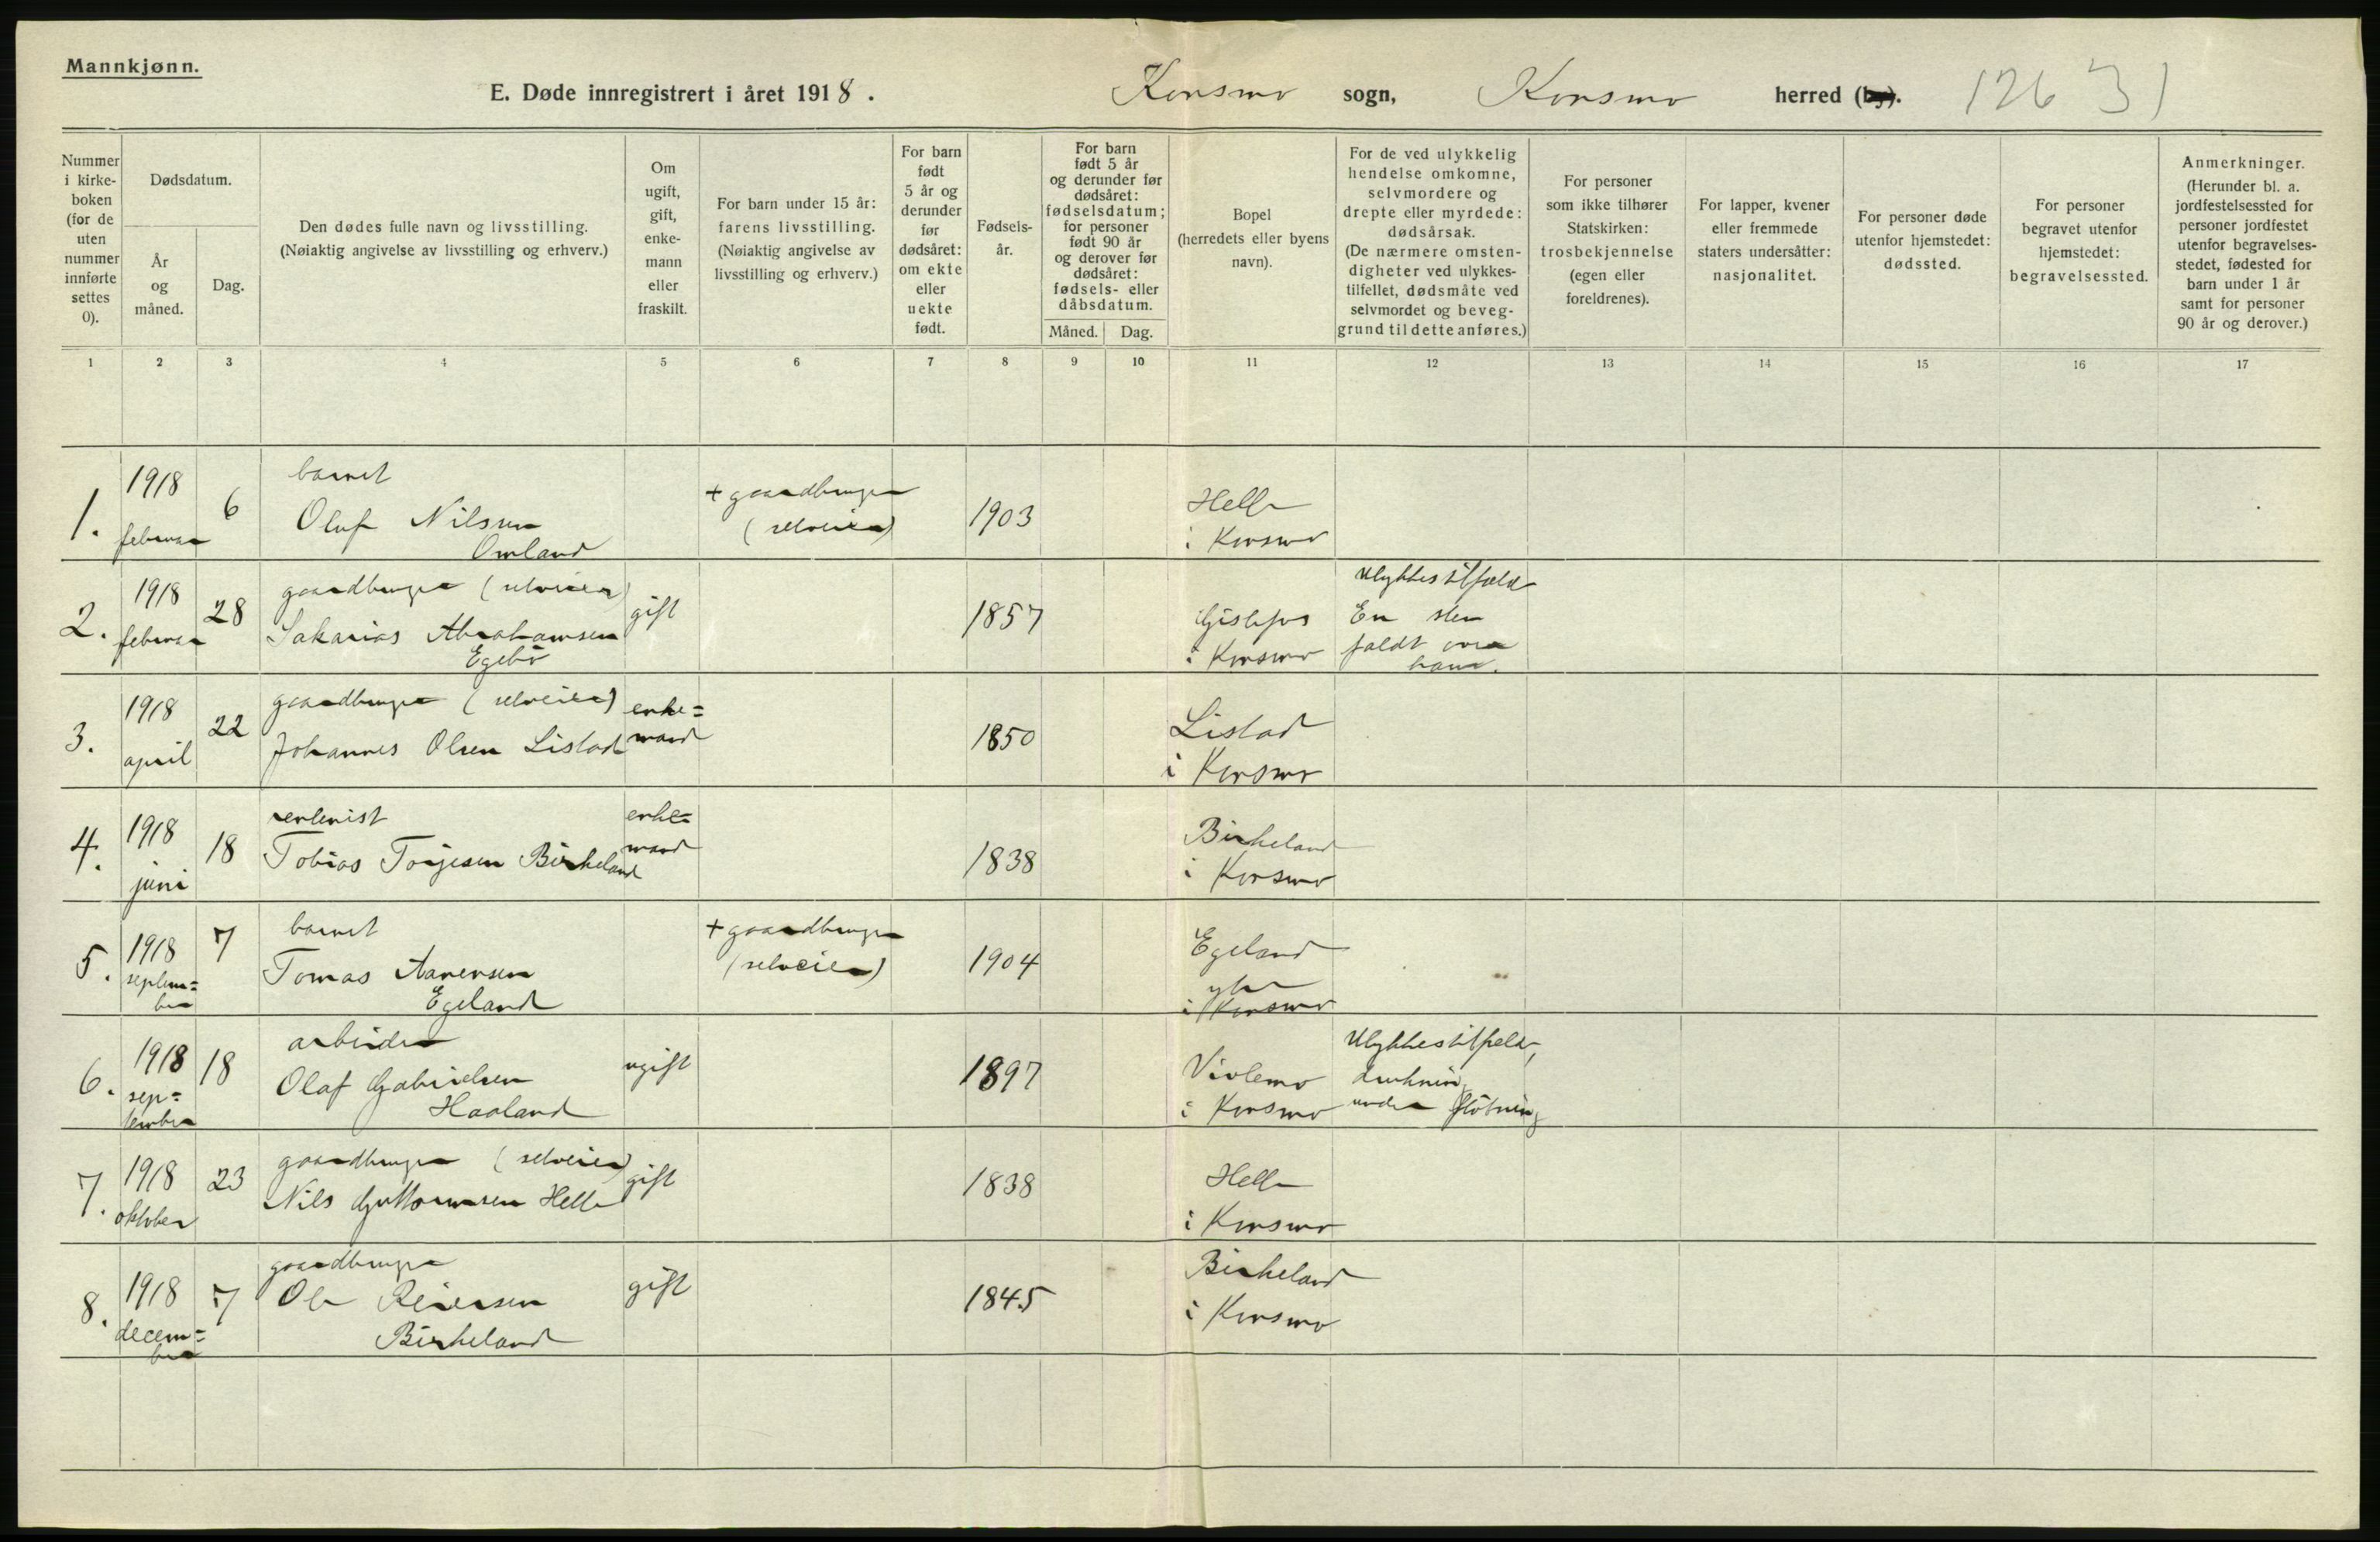 Mannkjønn.
E. Døde innregistrert i året 1918. Konsmo sogn, Konsmo herred (by). 126 31
Nummer i kirke-boken (for de uten nummer innførte settes 0).
Dødsdatum.
År og måned.
Dag.
Den dødes fulle navn og livsstilling.
(Nøiaktig angivelse av livsstilling og erhverv.)
Om ugift, gift, enke-mann eller fraskilt.
For barn under 15 år: farens livsstilling. (Nøiaktig angivelse av livsstilling og erhverv.)
For barn født 5 år og derunder før dødsåret: om ekte eller uekte født.
Fødsels-år.
For barn født 5 år og derunder før dødsåret: fødselsdatum; for personer født 90 år og derover før dødsåret: fødsels- eller dåbsdatum.
Måned. Dag.
Bopel (herredets eller byens navn).
For de ved ulykkelig hendelse omkomne, selvmordere og drepte eller myrdede: dødsårsak. (De nærmere omsten-digheter ved ulykkes-tilfellet, dødsmåte ved selvmordet og beveg-grund til dette anføres.)
For personer som ikke tilhører Statskirken: trosbekjennelse (egen eller foreldrenes).
For lapper, kvener eller fremmede staters undersåtter: nasjonalitet.
For personer døde utenfor hjemstedet: dødssted.
For personer begravet utenfor hjemstedet: begravelsessted.
Anmerkninger. (Herunder bl. a. jordfestelsessted for personer jordfestet utenfor begravelses-stedet, fødested for barn under 1 år samt for personer 90 år og derover.)
1 2 3 4 5 6 7 8 9 10 11 12 13 14 15 16 17
1. 1918 februar 6 barnet
Oluf Nilsen
Omland
+ gaardbruger
(selveier)
1903
Helle
i Konsmo
2. 1918 februar 28 gaardbruger (selveier)
Sakarias Abrahamsen
Egebö
gift
1857
Gislefos
i Konsmo
Ulykkestilfælde
En sten
faldt over
ham.
3. 1918 april 22 gaardbruger (selveier)
Johannes Olsen Listad
enke=
mand
1850
Listad
i Konsmo
4. 1918 juni 18 rentenist
Tobias Torjesen Birkeland
enke=
mand
1838
Birkeland
i Konsmo
5. 1918 septem=
ber
7 barnet
Tomas Aanensen
Egeland
+ gaardbruger
(selveier)
1904
Egeland
ytre
i Konsmo
6. 1918 sep=
tember
18 arbeider
Olaf Gabrielsen
Haaland
ugift
1897
Viblemo
i Konsmo
Ulykkestilfælde,
drukning
under fløtning
7. 1918 oktober 23 gaardbruger (selveier)
Nils Guttormsen Helle
gift
1838
Helle
i Konsmo
8. 1918 decem=
ber
7 gaardbruger
Ole Reiersen
Birkeland
gift
1845
Birkeland
i Konsmo